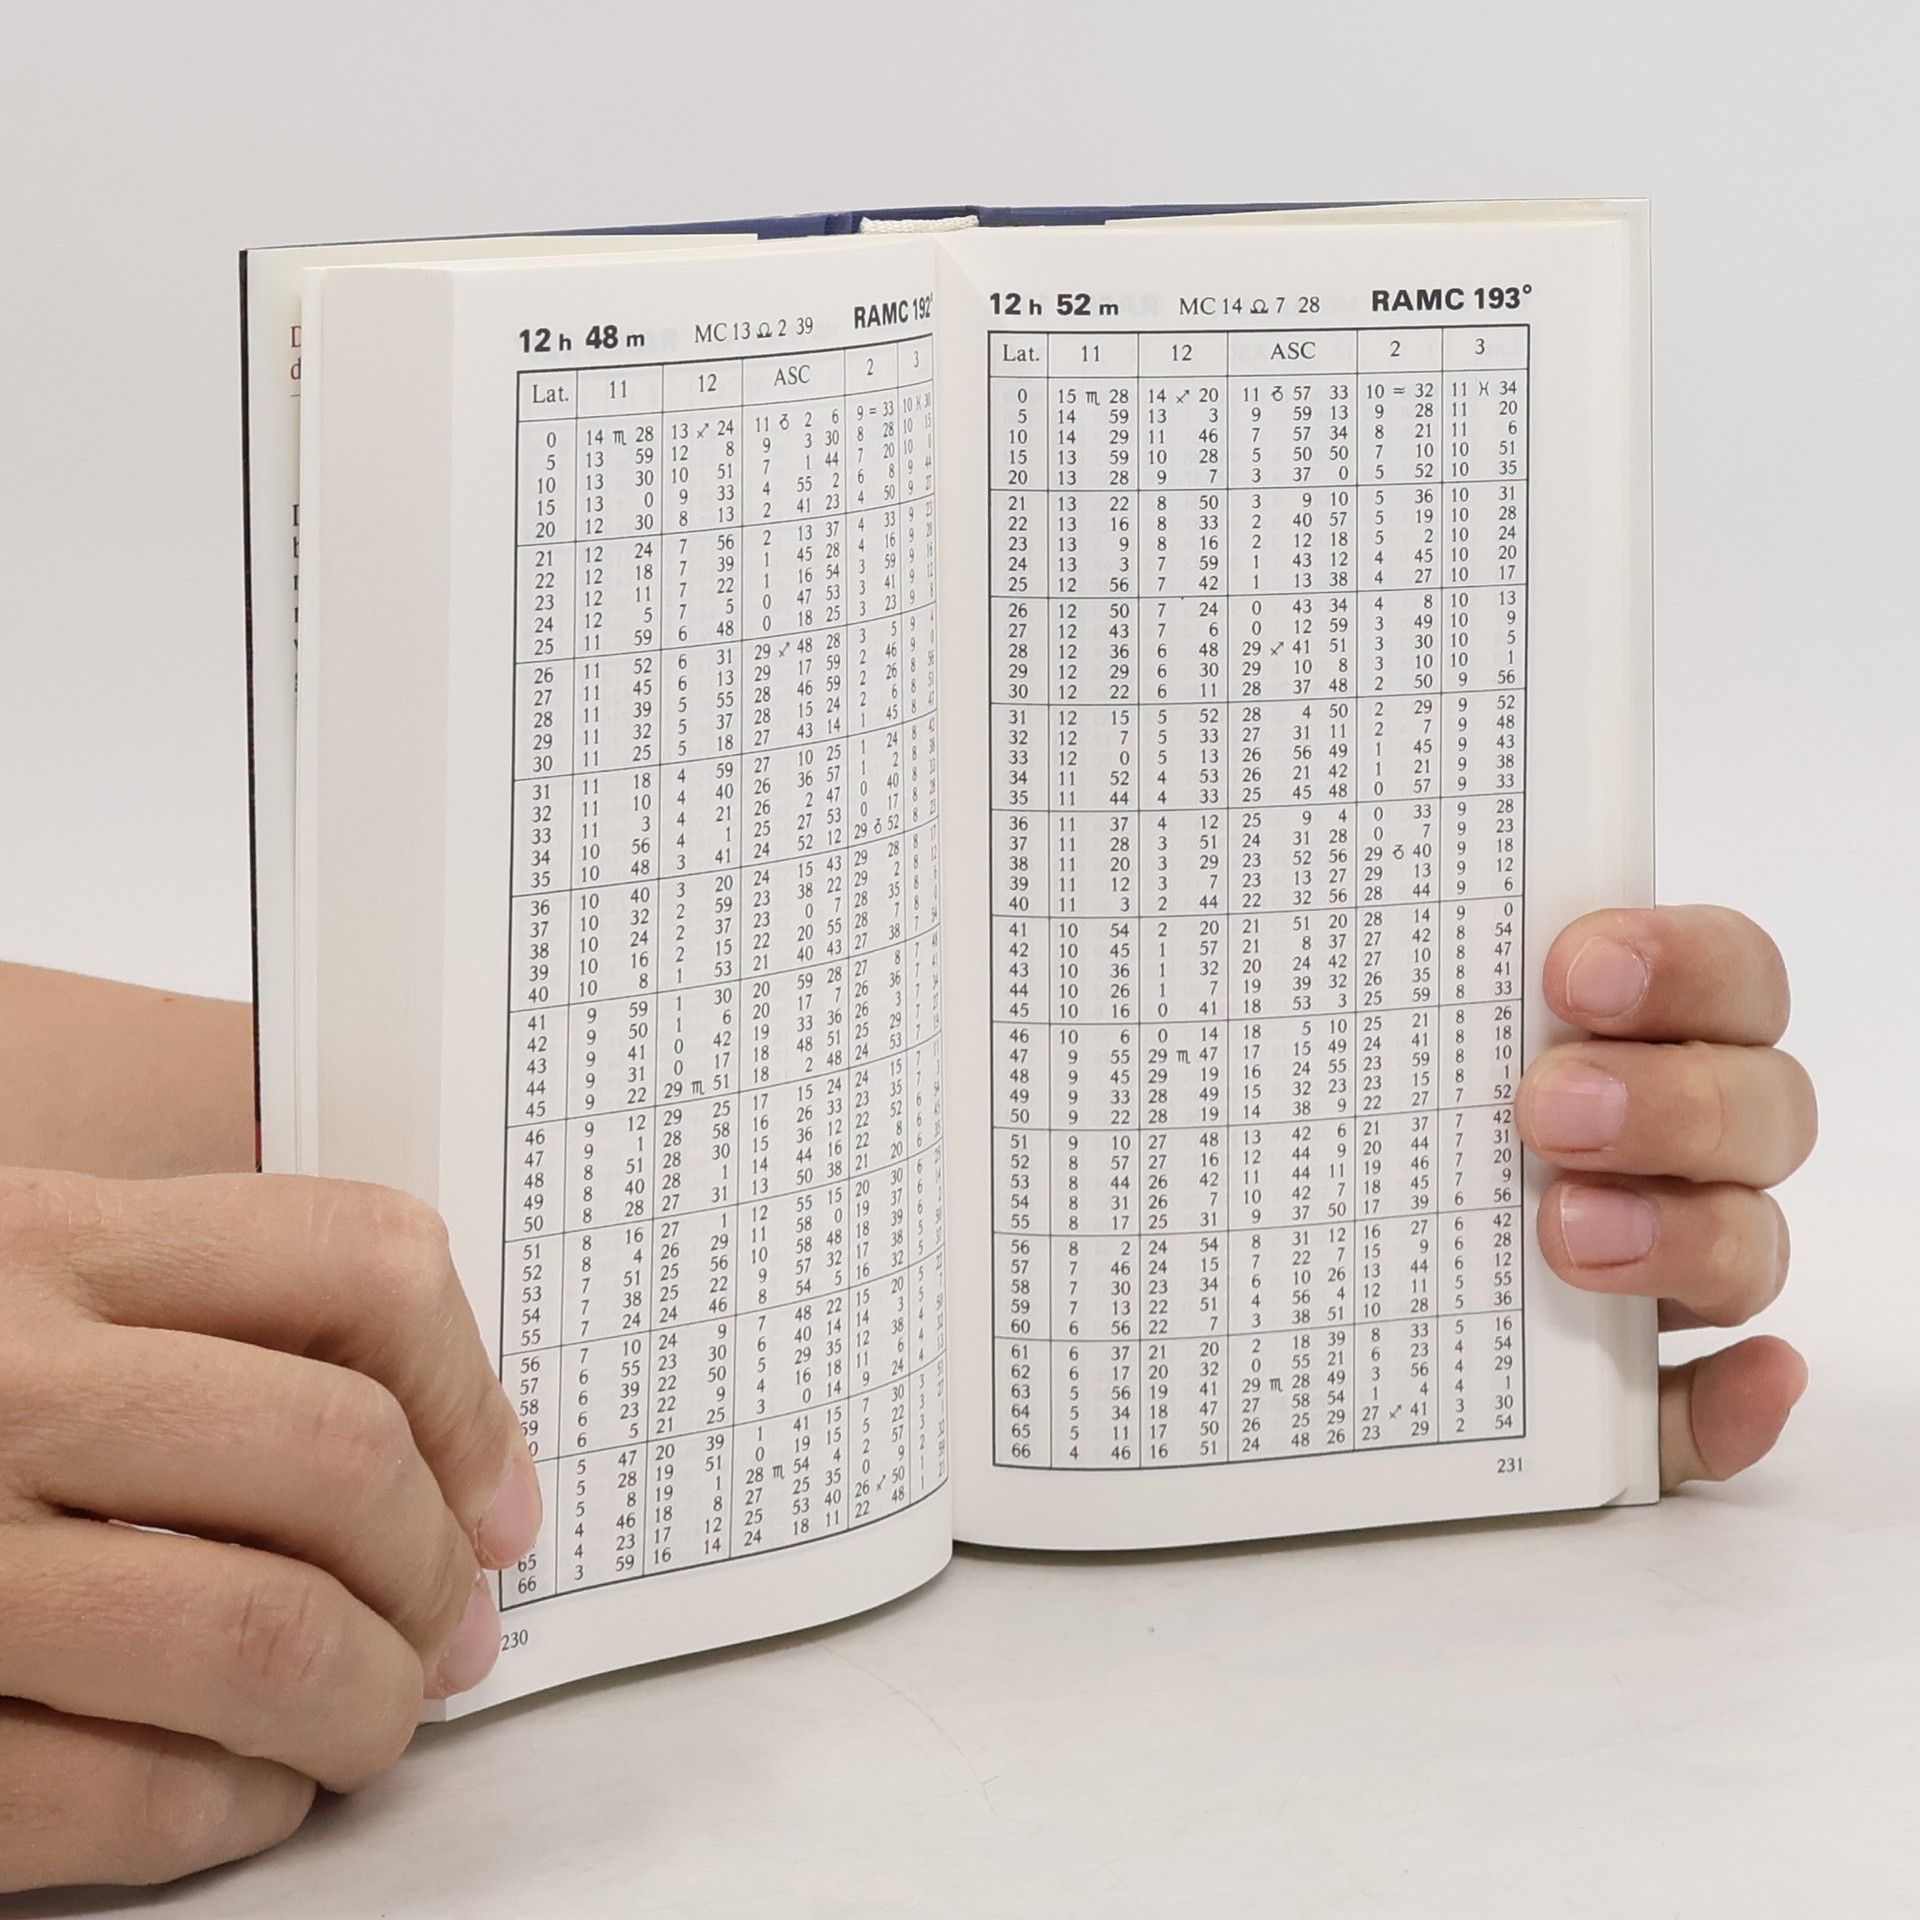 12 h 48 m MC 13 ♎ 2 39 RAMC 192°
Lat. 11 12 ASC 2 3
0 14 ♏ 28 13 ♐ 24 11 ♑ 2 6 9 ♒ 33 10 ♓ 30
5 13 59 12 8 9 3 30 8 28 10 15
10 13 30 10 51 7 1 44 7 20 10 0
15 13 0 9 33 4 55 2 6 8 9 44
20 12 30 8 13 2 41 23 4 50 9 27
21 12 24 7 56 2 13 37 4 33 9 23
22 12 18 7 39 1 45 28 4 16 9 20
23 12 11 7 22 1 16 54 3 59 9 16
24 12 5 7 5 0 47 53 3 41 9 12
25 11 59 6 48 0 18 25 3 23 9 8
26 11 52 6 31 29 ♐ 48 28 3 5 9 4
27 11 45 6 13 29 17 59 2 46 9 0
28 11 39 5 55 28 46 59 2 26 8 56
29 11 32 5 37 28 15 24 2 6 8 51
30 11 25 5 18 27 43 14 1 45 8 47
31 11 18 4 59 27 10 25 1 24 8 42
32 11 10 4 40 26 36 57 1 2 8 38
33 11 3 4 21 26 2 47 0 40 8 33
34 10 56 4 1 25 27 53 0 17 8 28
35 10 48 3 41 24 52 12 29 ♑ 52 8 23
36 10 40 3 20 24 15 43 29 28 8 17
37 10 32 2 59 23 38 22 29 2 8 12
38 10 24 2 37 23 0 7 28 35 8 6
39 10 16 2 15 22 20 55 28 7 8 0
40 10 8 1 53 21 40 43 27 38 7 54
41 9 59 1 30 20 59 28 27 8 7 48
42 9 50 1 6 20 17 7 26 36 7 41
43 9 41 0 42 19 33 36 26 3 7 34
44 9 31 0 17 18 48 51 25 29 7
45 9 22 29 ♏ 51 18 2 48 24 53 7
46 9 12 29 25 17 15 24 24 15 7
47 9 1 28 58 16 26 33 23 35 7
48 8 51 28 30 15 36 12 22 52 6
49 8 40 28 1 14 44 16 22 8 6
50 8 28 27 31 13 50 38 21 20 6
51 8 16 27 1 12 55 15 20 30 6
52 8 4 26 29 11 58 0 19 37 6
53 7 51 25 56 10 58 48 18 39 6
54 7 38 25 22 9 57 32 17 38 5
55 7 24 24 46 8 54 5 16 32 5
56 7 10 24 9 7 48 22 15 20 5
57 6 55 23 30 6 40 14 14 3 5
58 6 39 22 50 5 29 35 12 38 4
59 6 23 22 9 4 16 18 11 6 4
0 6 5 21 25 3 0 14 9 24 4
5 47 20 39 1 41 15 7 30 3
5 28 19 51 0 19 15 5 22 3
5 8 19 1 28 ♏ 54 4 2 57 3
4 46 18 8 27 25 35 0 9 2
65 4 23 17 12 25 53 40 26 ♐ 50 1
66 3 59 16 14 24 18 11 22 48 1
230
12 h 52 m MC 14 ♎ 7 28 RAMC 193°
Lat. 11 12 ASC 2 3
0 15 ♏ 28 14 ♐ 20 11 ♑ 57 33 10 ♒ 32 11 ♓ 34
5 14 59 13 3 9 59 13 9 28 11 20
10 14 29 11 46 7 57 34 8 21 11 6
15 13 59 10 28 5 50 50 7 10 10 51
20 13 28 9 7 3 37 0 5 52 10 35
21 13 22 8 50 3 9 10 5 36 10 31
22 13 16 8 33 2 40 57 5 19 10 28
23 13 9 8 16 2 12 18 5 2 10 24
24 13 3 7 59 1 43 12 4 45 10 20
25 12 56 7 42 1 13 38 4 27 10 17
26 12 50 7 24 0 43 34 4 8 10 13
27 12 43 7 6 0 12 59 3 49 10 9
28 12 36 6 48 29 ♐ 41 51 3 30 10 5
29 12 29 6 30 29 10 8 3 10 10 1
30 12 22 6 11 28 37 48 2 50 9 56
31 12 15 5 52 28 4 50 2 29 9 52
32 12 7 5 33 27 31 11 2 7 9 48
33 12 0 5 13 26 56 49 1 45 9 43
34 11 52 4 53 26 21 42 1 21 9 38
35 11 44 4 33 25 45 48 0 57 9 33
36 11 37 4 12 25 9 4 0 33 9 28
37 11 28 3 51 24 31 28 0 7 9 23
38 11 20 3 29 23 52 56 29 ♑ 40 9 18
39 11 12 3 7 23 13 27 29 13 9 12
40 11 3 2 44 22 32 56 28 44 9 6
41 10 54 2 20 21 51 20 28 14 9 0
42 10 45 1 57 21 8 37 27 42 8 54
43 10 36 1 32 20 24 42 27 10 8 47
44 10 26 1 7 19 39 32 26 35 8 41
45 10 16 0 41 18 53 3 25 59 8 33
46 10 6 0 14 18 5 10 25 21 8 26
47 9 55 29 ♏ 47 17 15 49 24 41 8 18
48 9 45 29 19 16 24 55 23 59 8 10
49 9 33 28 49 15 32 23 23 15 8 1
50 9 22 28 19 14 38 9 22 27 7 52
51 9 10 27 48 13 42 6 21 37 7 42
52 8 57 27 16 12 44 9 20 44 7 31
53 8 44 26 42 11 44 11 19 46 7 20
54 8 31 26 7 10 42 7 18 45 7 9
55 8 17 25 31 9 37 50 17 39 6 56
56 8 2 24 54 8 31 12 16 27 6 42
57 7 46 24 15 7 22 7 15 9 6 28
58 7 30 23 34 6 10 26 13 44 6 12
59 7 13 22 51 4 56 4 12 11 5 55
60 6 56 22 7 3 38 51 10 28 5 36
61 6 37 21 20 2 18 39 8 33 5 16
62 6 17 20 32 0 55 21 6 23 4 54
63 5 56 19 41 29 ♏ 28 49 3 56 4 29
64 5 34 18 47 27 58 54 1 4 4 1
65 5 11 17 50 26 25 29 27 ♐ 41 3 30
66 4 46 16 51 24 48 26 23 29 2 54
231